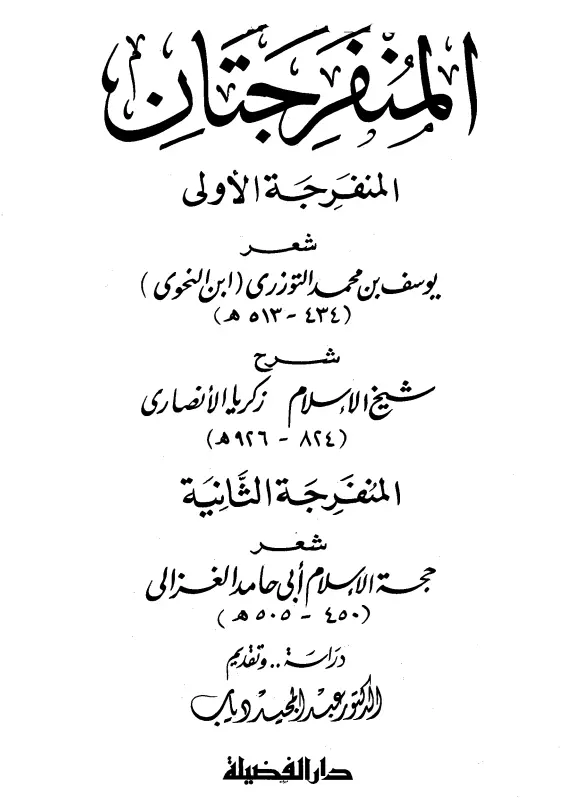 المُنْفَرِجَتَانِ
المنفَرِجَة الأولى
شعر
يوسف بن محمد التوزرى (ابن النحوى)
(٤٣٤ - ٥١٣ هـ)
شرح
شيخ الإسلام زكريا الأنصارى
(٨٢٤ - ٩٢٦ هـ)
المُنفَرِجَة الثَّانِيَة
شعر
حجة الإسلام أبى حامد الغزالى
(٤٥٠ - ٥٠٥ هـ)
دَرَاسَة .. وتقديم
الدكتور عبد المجيد دياب
دار الفضيلة